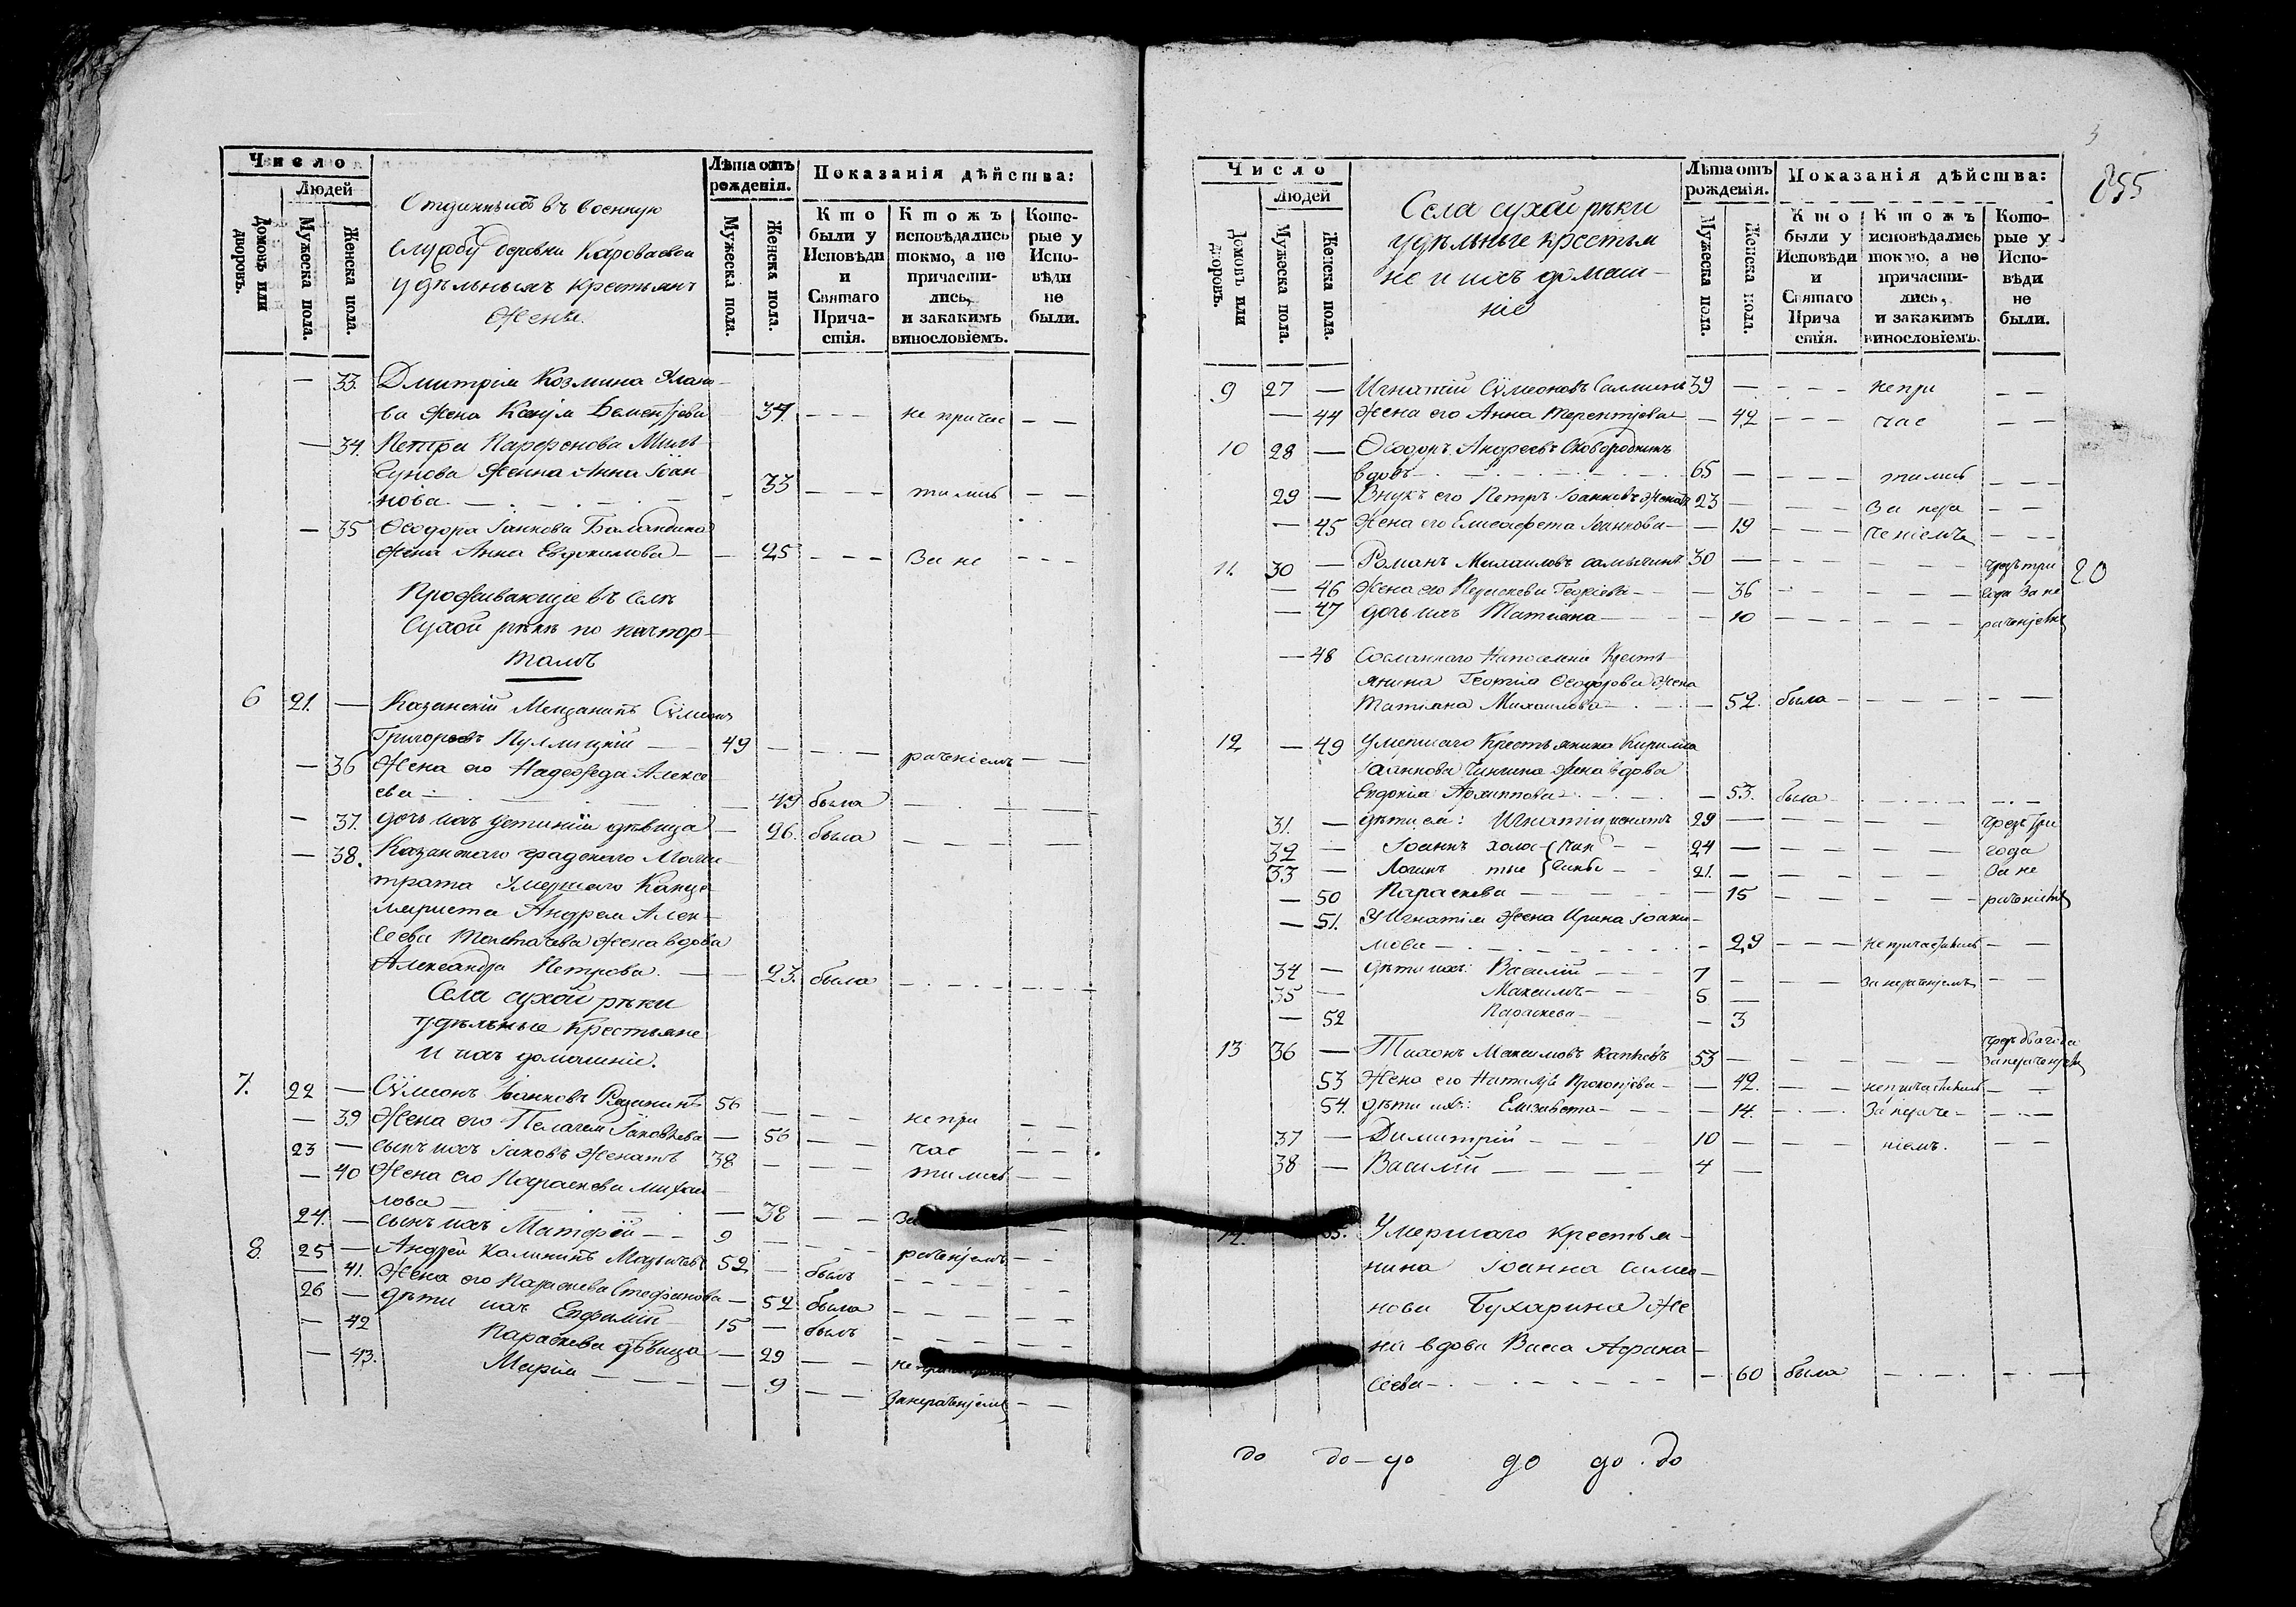 Число
Людей
Домовъ или дворовъ.
Мужеска пола.
Женска пола.
Отданныхъ въ военную
службу деревни Кароваевой
удѣльныхъ крестьянъ
жены.
Лѣта отъ рожденія.
Мужеска пола.
Женска пола.
Показанія дѣйства:
Кто были у Исповѣди и Святаго Причастія.
Ктожъ исповѣдались токмо, а не причастились, и закакимъ винословіемъ.
Которые у Исповѣди не были.
— 33. Дмитрія Козмина
ва жена — 34. — — — не причас — —
— 34. Петра Парфенова
жена Анна Іоан-
нова — 33 — — — тились — —
— 35 Ѳеодора Іоаннова Баландина
жена Анна Евдокимова — — 25 — — — За не — — —
Проживающіе въ селѣ
Сухой рѣкѣ по пачпор-
тамъ
6 21. — Казанскій Мещанинъ Сѵмеонъ
Григорьевъ — 49 — — — рачениемъ — —
— 36 Жена его Надежда Алексе-
ева — — 49 была — — — —
— 37. дочь ихъ Устинія дѣвица — 26. была — — — —
— 38. Казанскаго градскаго Магис-
трата умершаго Канце-
ляриста Андрея Алек-
сеева жена вдова
Александра Петрова. — — 23. была — — — —
Села сухой рѣки
удѣльные крестьяне
и ихъ домашніе.
7. 22 — Сѵмеонъ Іоанновъ 56 — — — не при — —
— 39 Жена его Пелагея Іаковлева — 56 — — час — —
23 — сынъ ихъ Іаковъ женатъ 38 — — — тились — —
— 40 Жена его Параскева Михаи-
лова — — 38 — — За — —
24. — сынъ ихъ Матфей — — 9 — — — рачениемъ — —
8. 25 — Андрей Калининъ 52 — былъ — — — —
— 41. Жена его Параскева Стефанова — 52 была — — — —
26 — дѣти ихъ Евфимій — 15 — былъ — — — —
— 42 Параскева дѣвица — 29 — — не
— 43. Марія — — — 9 — — Занерачениемъ — —
Число
Людей
Домовъ или дворовъ.
Мужеска пола.
Женска пола.
Села сухой рѣки
удѣльные крестья
не и ихъ домаш-
ніе
Лѣта отъ рожденія.
Мужеска пола.
Женска пола.
Показанія дѣйства:
Кто были у Исповѣди и Святаго Прича стія.
Ктожъ исповѣдались токмо, а не причастились, и закакимъ винословіемъ.
Которые у Исповѣди не были.
255
9 27 — Игнатій Сѵмеоновъ 39 — — — не при — —
— 44 жена его Анна Терентьева — 42 — — — час — —
10 28 — Ѳеодоръ Андреевъ Сковородкинъ
вдовъ — 65 — — тились — — —
29 — Внукъ его Петръ Іоанновъ женатъ 23 — — — За нера — —
— 45 Жена его Елисавета Іоаннова — — 19 — — — ченіемъ — — —
11. 30 — Романъ Михаиловъ 30 — — — — — чрезъ три
20
— 46 Жена его Параскева Георгіева — — 36 — — — — года За не
— 47 дочь ихъ Татіана — — 10 — — — — рачениемъ
— 48 Сосланнаго Напоселеніе Кресть-
янина Георгія Ѳеодорова жена
Татіана Михаилова — — 52. была — — — — —
12 — 49 Умершаго Крестьянина Кирилла
Іоаннова жена вдова
Евдокія Архиппова — — 53. была — — — — —
31. — дѣти ея: Игнатій женатъ 29 — — — — чрезъ три
32 — Іоаннъ холо- — — 24 — — — — года
33 — Логинъ тые — — 21. — — — — За не
— 50 Параскева — — — 15 — — — — рачениемъ
— 51. У Игнатія жена Ирина Іоаки-
мова — — 29 — — — непричастилась — —
34 — дѣти ихъ: Василій — — 7 — — — занерачениемъ — —
35 — Максимъ — — 5 —
— 52 Параскева — — 3
13 36 — Тихонъ Максимовъ 53 — — — — чрезъ два года занерачениемъ
53 Жена его Наталья Прокопьева — — 42. — — непричастилась — —
54. дѣти ихъ: Елизавета — — — 14. — — За нераче — — —
37 — Димитрій — — — 10 — — ніемъ. — —
38 — Василій — — — 4 —
14. 55. Умершаго крестья-
нина Іоанна Симео-
нова Бухарина же
на вдова Васса Афана-
сіева — — 60 была — — — —
до до — до до до . до